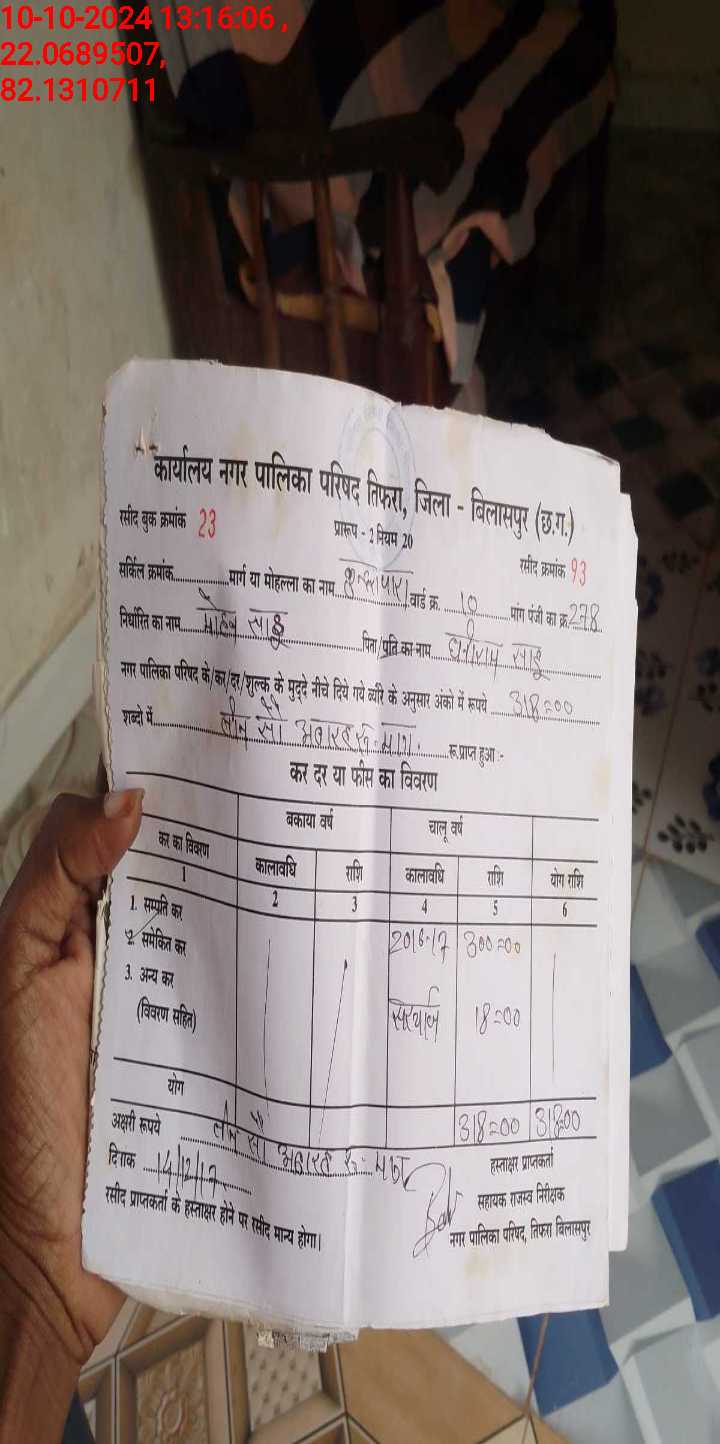 10-10-2024 13:16:06 ,
22.0689507,
82.1310711
कार्यालय नगर पालिका परिषद तिफरा, जिला - बिलासपुर (छ.ग.)
रसीद बुक क्रमांक 23
प्रारूप - 2 नियम 20
रसीद क्रमांक 93
सर्किल क्रमांक............मार्ग या मोहल्ला का नाम............वार्ड क्र. 10 मांग पंजी का क्र 278
निर्धारित का नाम साहू पिता/पति का नाम धनीराम साहू
नगर पालिका परिषद के/कर/दर/शुल्क के मुद्दे नीचे दिये गये ब्यौरे के अनुसार अंको में रूपये 318=00
शब्दो में तीन सौ अठारह रू. मात्र रू.प्राप्त हुआ :-
कर दर या फीस का विवरण
कर का विवरण बकाया वर्ष चालू वर्ष
कालावधि राशि कालावधि राशि योग राशि
1 2 3 4 5 6
1. सम्पति कर
2. समेकित कर 2016-17 300=00
3. अन्य कर
(विवरण सहित) 18=00
योग 318=00 318=00
अक्षरी रूपये तीन सौ अठारह रू. मात्र
दिनांक 14/12/17
हस्ताक्षर प्राप्तकर्ता
सहायक राजस्व निरीक्षक
रसीद प्राप्तकर्ता के हस्ताक्षर होने पर रसीद मान्य होगा।
नगर पालिका परिषद, तिफरा बिलासपुर